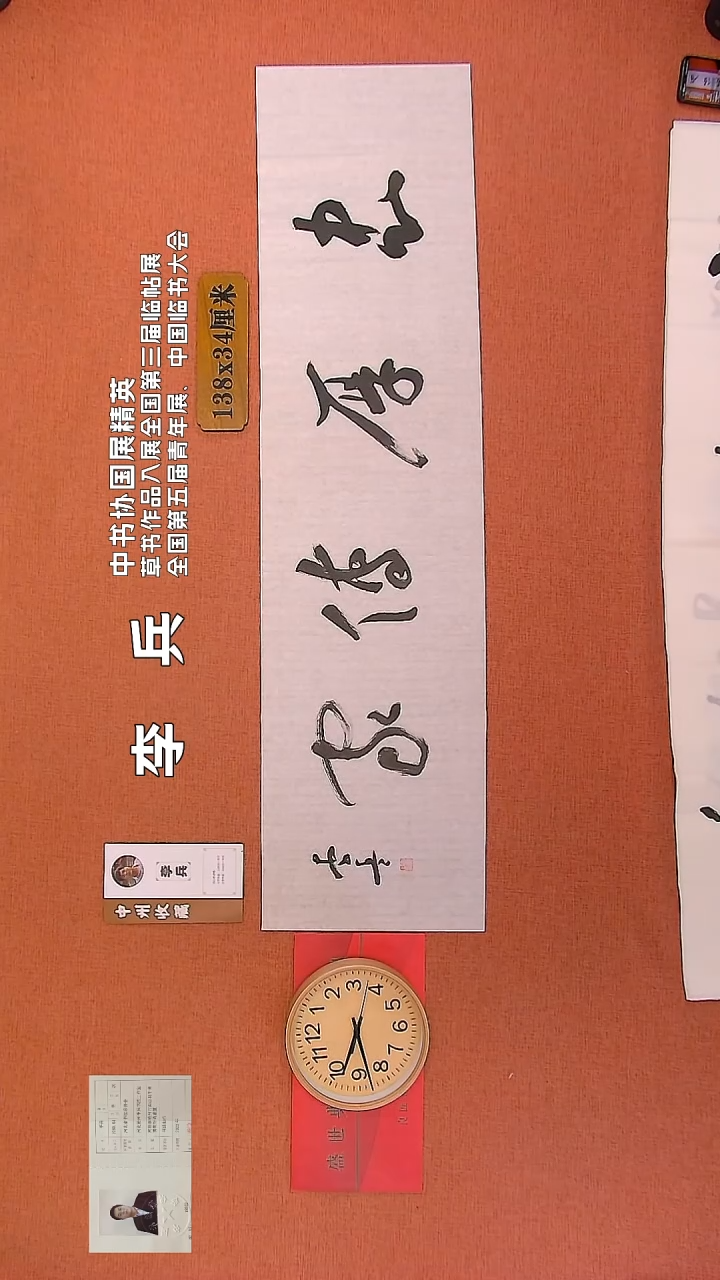 中书协国展精英
草书作品入展全国第三届临帖展
全国第五届青年展、中国临书大会
李 兵
138x34厘米
忠厚传家
李兵
李兵
中州收藏
12
1
2
3
4
5
6
7
8
9
10
11
盛世